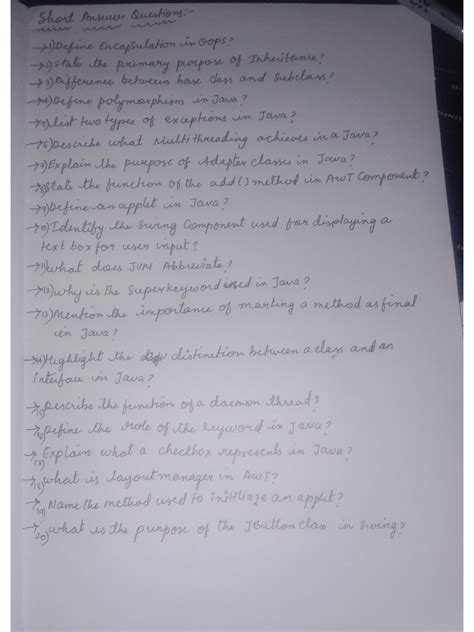 Short Answer Questions:-
→1)Define Encapsulation in Oops?
→2)State the primary purpose of Inheritance?
→3)Difference between base class and Subclass?
→4)Define polymorphism in Java?
→5)List two types of exceptions in Java?
→6)Describe what Multithreading achieves in a Java?
→7)Explain the purpose of Adapter classes in Java?
→8)State the function of the add() method in AWT Component?
→9)Define an applet in Java?
→10)Identify the Swing Component used for displaying a
text box for user input?
→11)what does JVM Abbreviate?
→12)why is the Super keyword used in Java?
→13)Mention the importance of marking a method as final
in Java?
→14)Highlight the distinction between a class and an
interface in Java?
→15)Describe the function of a daemon thread?
→16)Define the role of the keyword in Java?
→17)Explain what a checkbox represents in Java?
→18)what is layout manager in AWT?
→19)Name the method used to initilaze an applet?
→20)what is the purpose of the JButton class in Swing?